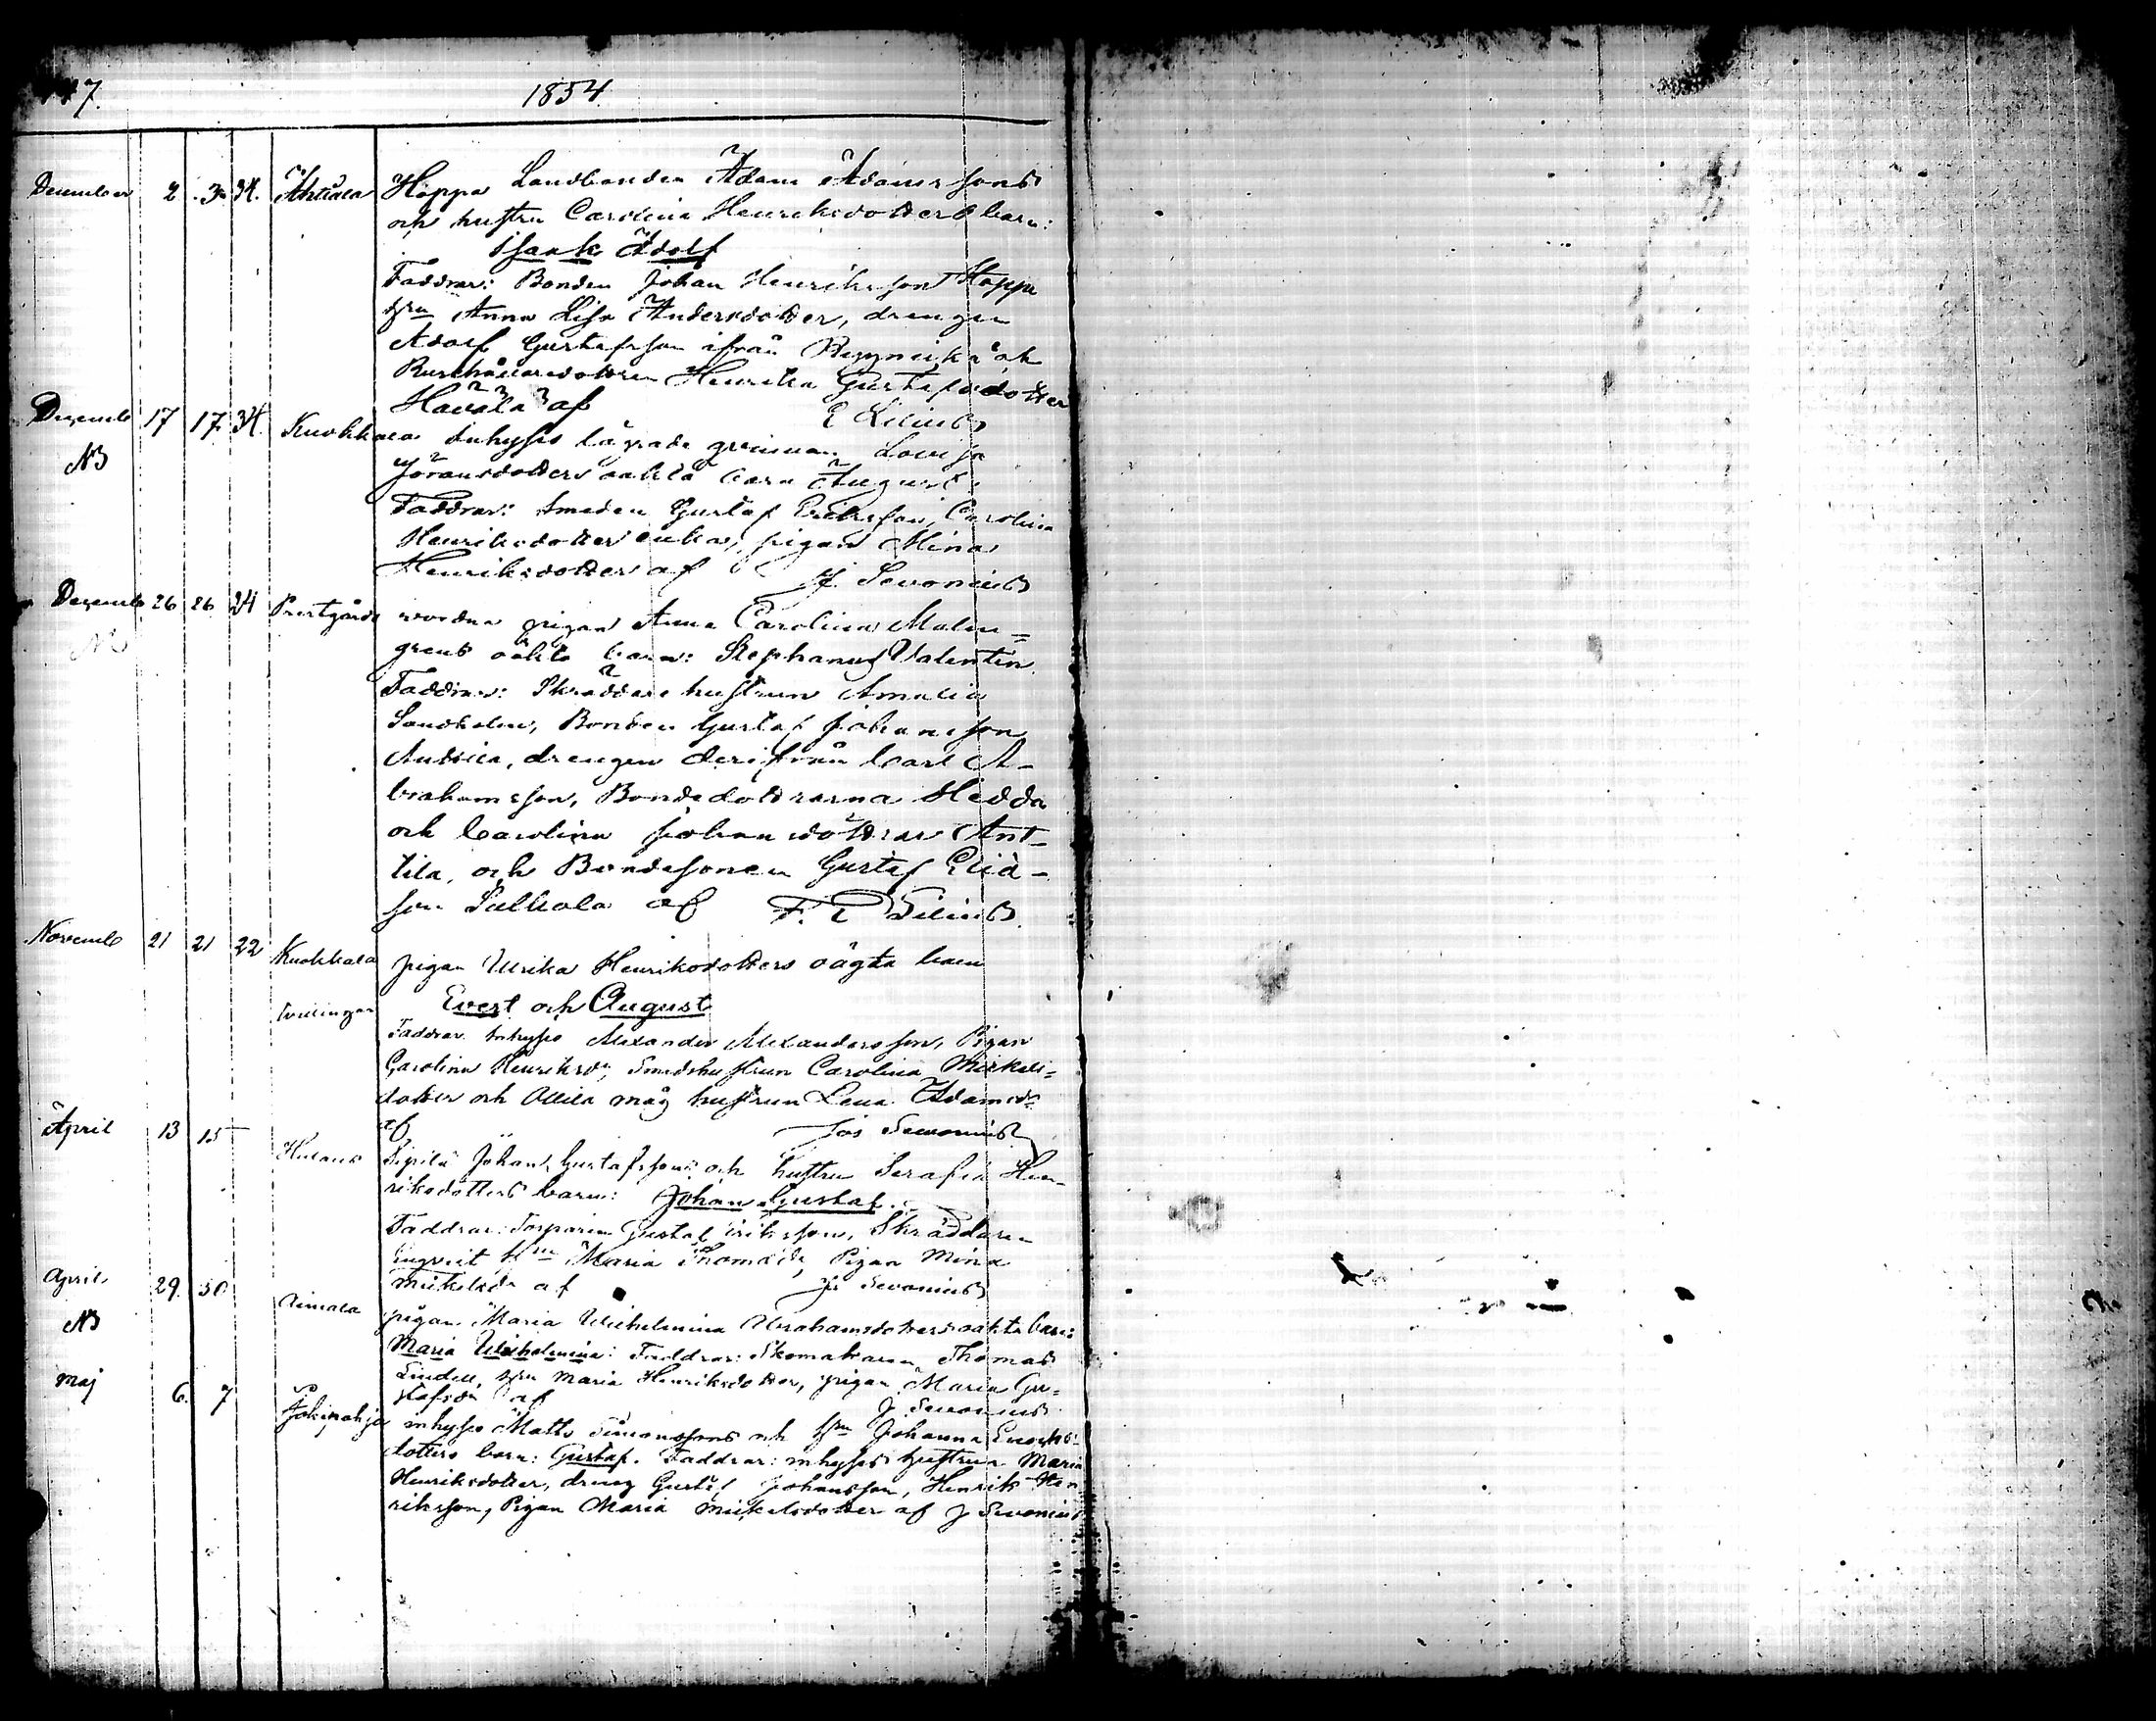 7.
1854.
December 2 3 34. Ahtiala Hoppa Landbonden Adam Adamssons
och hustru Carolina Henriksdotters barn:
Isaak Adolf
Faddrar: Bonden Johan Henriksson Hoppa
hn Anna Lisa Andersdotter, drengen
Adolf Gustafsson ifrån och
Henrika Gustafsdotter
Havala af E Lilius
Decemb 17 17 34. Kuokkala Inhyses lägrade qvinnan Lovisa
NB
Göransdotters oäkta barn August
Faddrar: Smeden Gustaf Ericksson, Carolina
Henriksdotter enka, pigan Mina
Henriksdotter af J. Sevonius
Decemb 26 26 24 Prestgårds pigan Anna Carolina Malm=
NB
grens oäkta barn: Stephanus Valentin
Faddrar: Skräddare hustrun Amalia
Sandholm, Bonden Gustaf Johansson
Anttila, drengen derifrån Carl A-
brahamsson, Bondedöttrarna Hedda
och Carolina Johansdöttrar Ant-
tila, och Bondesonen Gustaf Elia-
son Pulkola af F. E Lilius
Novemb 21 21 22 Kuokkala pigan Ulrika Henriksdotters oägta barn
Tvillingar Evert och August
Faddrar Inhyses Alexander Alexandersson, Pigan
Carolina Henriksdr, Smedshustrun Carolina Mickels=
dotter och Ollila måg hustrun Lena Adamsdr
af Jos Sevonius
April 13 15 Sipilä Johan Gustafssons och hustru Serafia Hen-
riksdotters barn: Johan Gustaf.
Faddrar: Torparen Gustaf Eriksson, Skräddaren
Engvist hn Maria Thomasdr, Pigan Mina
Mickelsdr af Js Sevonius
April 29. 30 pigan Maria Wilhelmina Abrahamsdotters oäkta barn:
NB
Maria Wilhelmina: Faddrar: Skomakaren Thomas
Lindell, hn Maria Henriksdotter, pigan Maria Gu=
stafsdr af J Sevonius
Maj 6. 7 Jokipohja inhyses Matts Simonssons och hn Johanna Enochs-
dotters barn: Gustaf. Faddrar: inhyses hustrun Maria
Henriksdotter, dreng Gustaf Johansson, Henrik Hen
riksson, Pigan Maria Mickelsdotter af J Sevonius